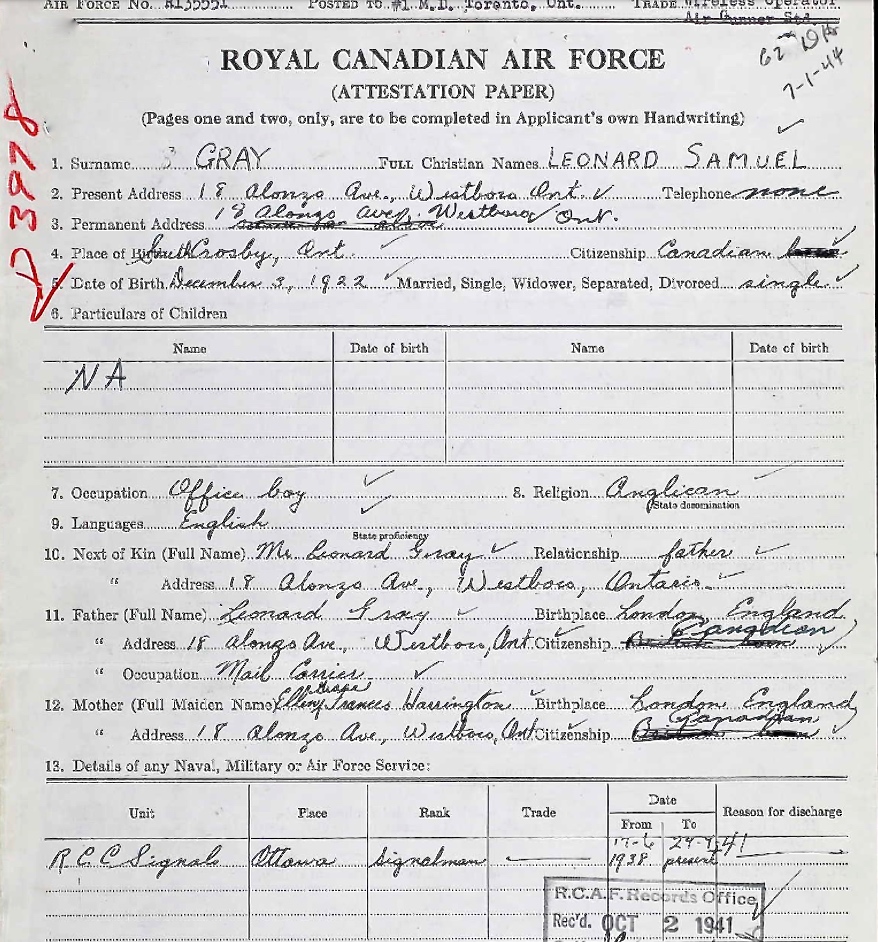 AIR FORCE No. R135551 POSTED TO #1 M.D. Toronto, Ont. TRADE Wireless Operator
Air Gunner Std.
62 DH
7-1-44
D 3978
ROYAL CANADIAN AIR FORCE
(ATTESTATION PAPER)
(Pages one and two, only, are to be completed in Applicant's own Handwriting)
1. Surname GRAY FULL Christian Names LEONARD SAMUEL
2. Present Address 18 Alonzo Ave., Westboro Ont. Telephone none
3. Permanent Address 18 Alonzo Ave, Westboro Ont.
4. Place of Birth South Crosby, Ont. Citizenship Canadian
5. Date of Birth December 3, 1922 Married, Single, Widower, Separated, Divorced single
6. Particulars of Children
Name Date of birth Name Date of birth
NA
7. Occupation Office boy 8. Religion Anglican
State denomination
9. Languages English
State proficiency
10. Next of Kin (Full Name) Mr. Leonard Gray Relationship father
" Address 18 Alonzo Ave., Westboro, Ontario
11. Father (Full Name) Leonard Gray Birthplace London, England
" Address 18 Alonzo Ave., Westboro, Ont Citizenship Canadian
" Occupation Mail Carrier
12. Mother (Full Maiden Name) Ellen Frances Harrington Birthplace London England
" Address 18 Alonzo Ave, Westboro, Ont Citizenship Canadian
13. Details of any Naval, Military or Air Force Service:
Unit Place Rank Trade Date Reason for discharge
From To
R C C Signals Ottawa Signalman 17-6 1938 present 41
R.C.A.F. Records Office
Rec'd. OCT 2 1941